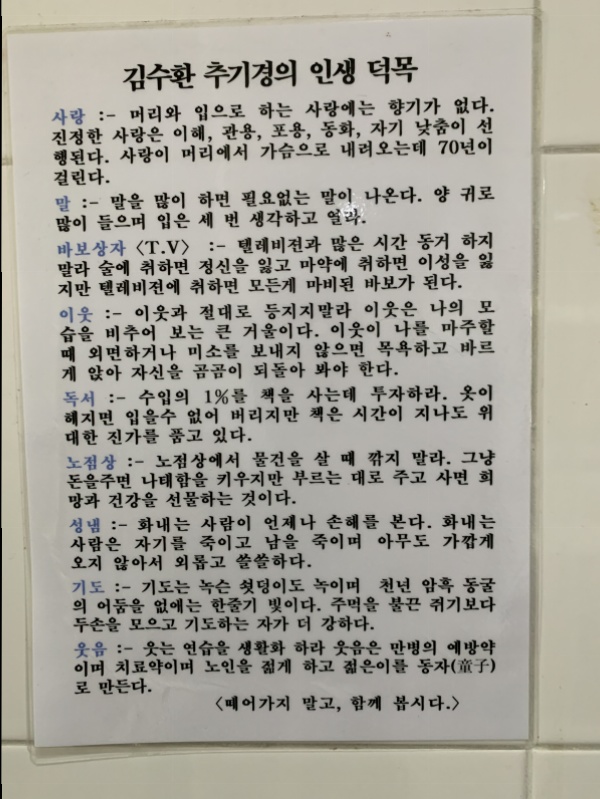 김수환 추기경의 인생 덕목
사랑 :- 머리와 입으로 하는 사랑에는 향기가 없다.
진정한 사랑은 이해, 관용, 포용, 동화, 자기 낮춤이 선
행된다. 사랑이 머리에서 가슴으로 내려오는데 70년이
걸린다.
말 :- 말을 많이 하면 필요없는 말이 나온다. 양 귀로
많이 들으며 입은 세 번 생각하고 열라.
바보상자 〈T.V〉 :- 텔레비전과 많은 시간 동거 하지
말라 술에 취하면 정신을 잃고 마약에 취하면 이성을 잃
지만 텔레비전에 취하면 모든게 마비된 바보가 된다.
이웃 :- 이웃과 절대로 등지지말라 이웃은 나의 모
습을 비추어 보는 큰 거울이다. 이웃이 나를 마주할
때 외면하거나 미소를 보내지 않으면 목욕하고 바르
게 앉아 자신을 곰곰이 되돌아 봐야 한다.
독서 :- 수입의 1%를 책을 사는데 투자하라. 옷이
해지면 입을수 없어 버리지만 책은 시간이 지나도 위
대한 진가를 품고 있다.
노점상 :- 노점상에서 물건을 살 때 깎지 말라. 그냥
돈을주면 나태함을 키우지만 부르는 대로 주고 사면 희
망과 건강을 선물하는 것이다.
성냄 :- 화내는 사람이 언제나 손해를 본다. 화내는
사람은 자기를 죽이고 남을 죽이며 아무도 가깝게
오지 않아서 외롭고 쓸쓸하다.
기도 :- 기도는 녹슨 쇳덩이도 녹이며 천년 암흑 동굴
의 어둠을 없애는 한줄기 빛이다. 주먹을 불끈 쥐기보다
두손을 모으고 기도하는 자가 더 강하다.
웃음 :- 웃는 연습을 생활화 하라 웃음은 만병의 예방약
이며 치료약이며 노인을 젊게 하고 젊은이를 동자(童子)
로 만든다.
〈떼어가지 말고, 함께 봅시다.〉